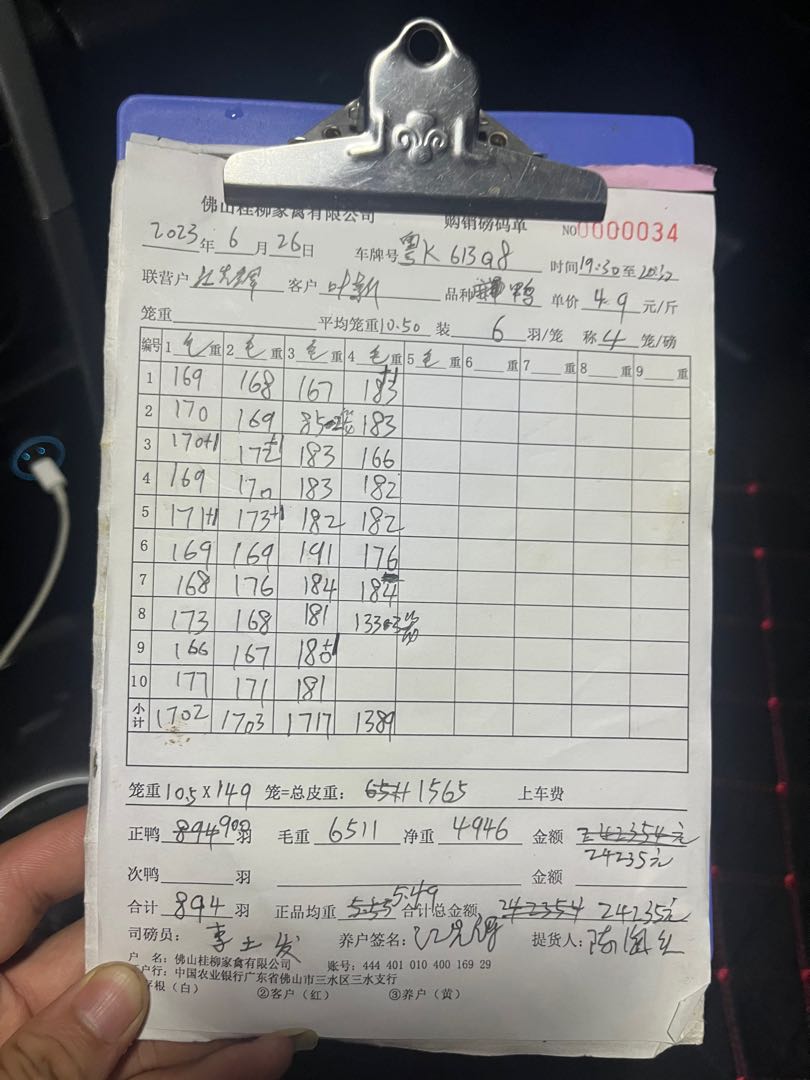 佛山桂柳家禽有限公司 购销磅码单 NO0000034
2023年6月26日 车牌号粤K 613Q8 时间19:30至20:12
联营户 客户 叶新 品种 鸭 单价 4.9 元/斤
笼重 平均笼重10.50 装 6 羽/笼 称 4 笼/磅
编号 1 毛 重 2 毛 重 3 毛 重 4 毛 重 5 毛 重 6 重 7 重 8 重 9 重
1 169 168 167 183+1
2 170 169 85-2 183
3 170+1 172+1 183 166
4 169 170 183 182
5 171+1 173+1 182 182
6 169 169 191 176
7 168 176 184 184
8 173 168 181 133-3笼
9 166 167 180+1
10 177 171 181
小计 1702 1703 1717 1389
笼重 10.5 X 149 笼=总皮重: 6511 1565 上车费
正鸭 894 900 羽 毛重 6511 净重 4946 金额 242354元
24235元
次鸭 羽 金额
合计 894 羽 正品均重 555 5.49 合计总金额 242354 24235元
司磅员: 李土发 养户签名: 提货人:
户 名: 佛山桂柳家禽有限公司 账号: 444 401 010 400 169 29
户行: 中国农业银行广东省佛山市三水区三水支行
存根(白) ②客户(红) ③养户(黄)